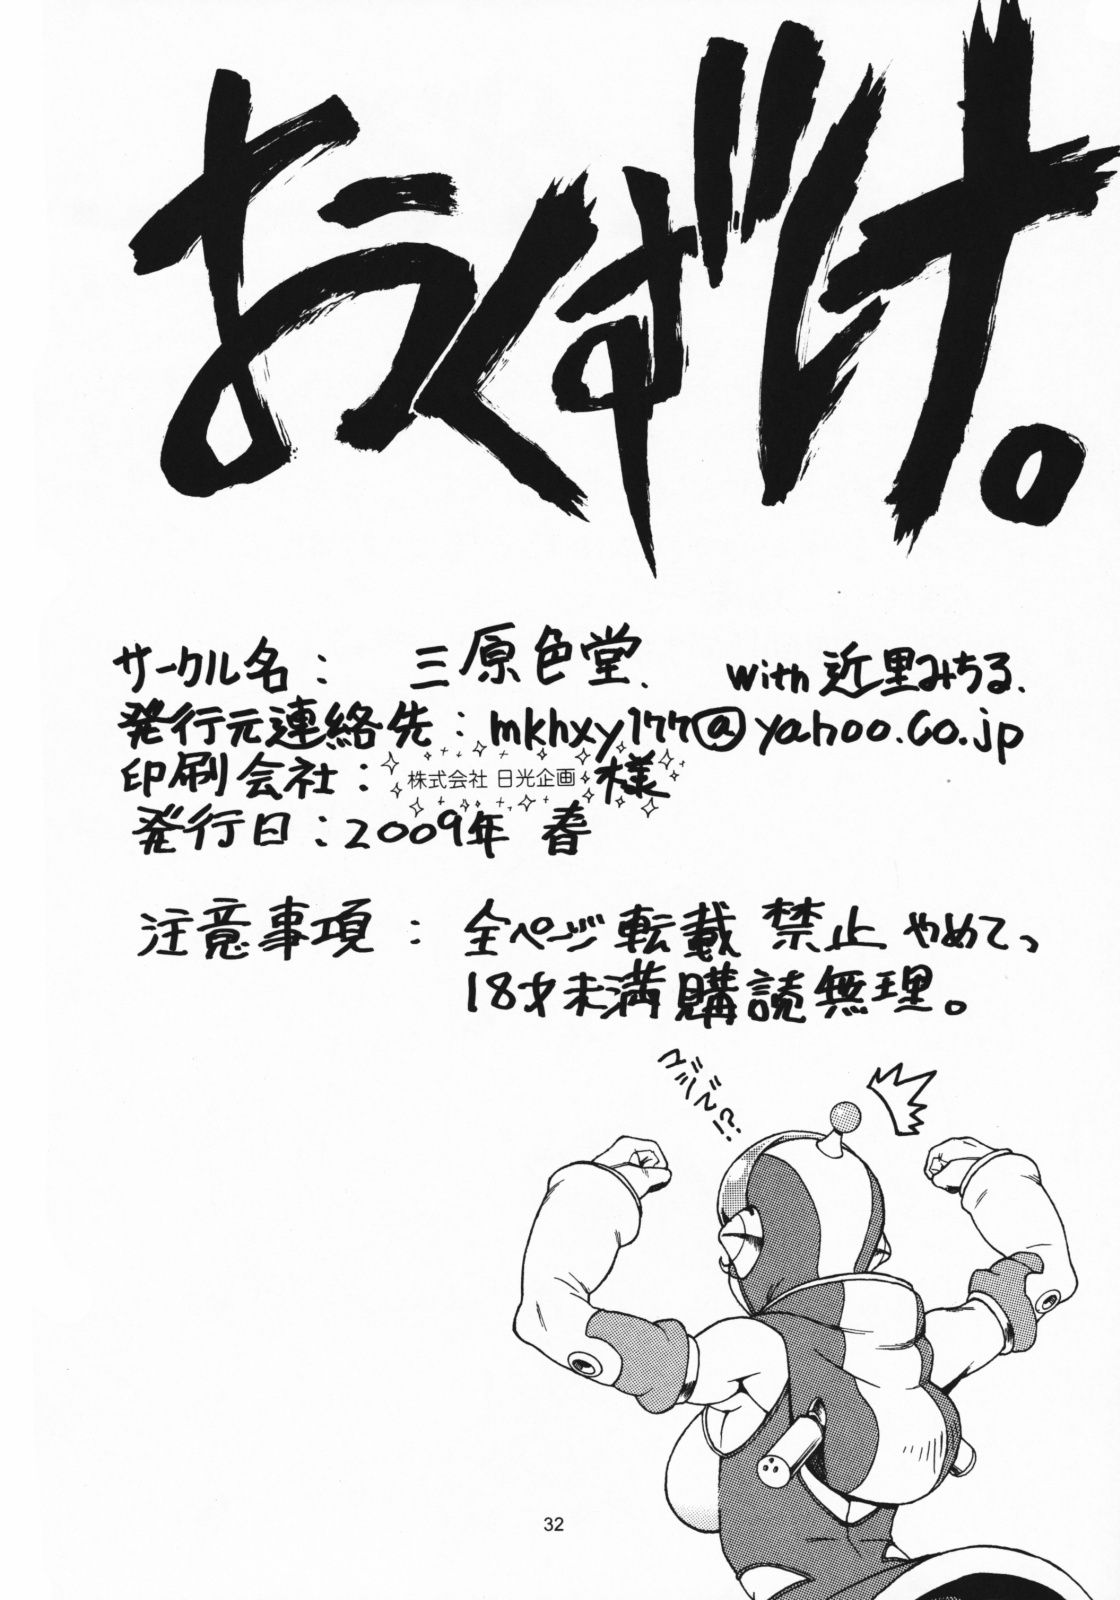 おくづけ。
サークル名： 三原色堂. with 近里みちる.
発行元連絡先：mkhxy177@yahoo.co.jp
印刷会社：株式会社 日光企画 様
発行日：2009年 春
注意事項：全ページ転載 禁止 やめてっ
18才未満購読無理。
32